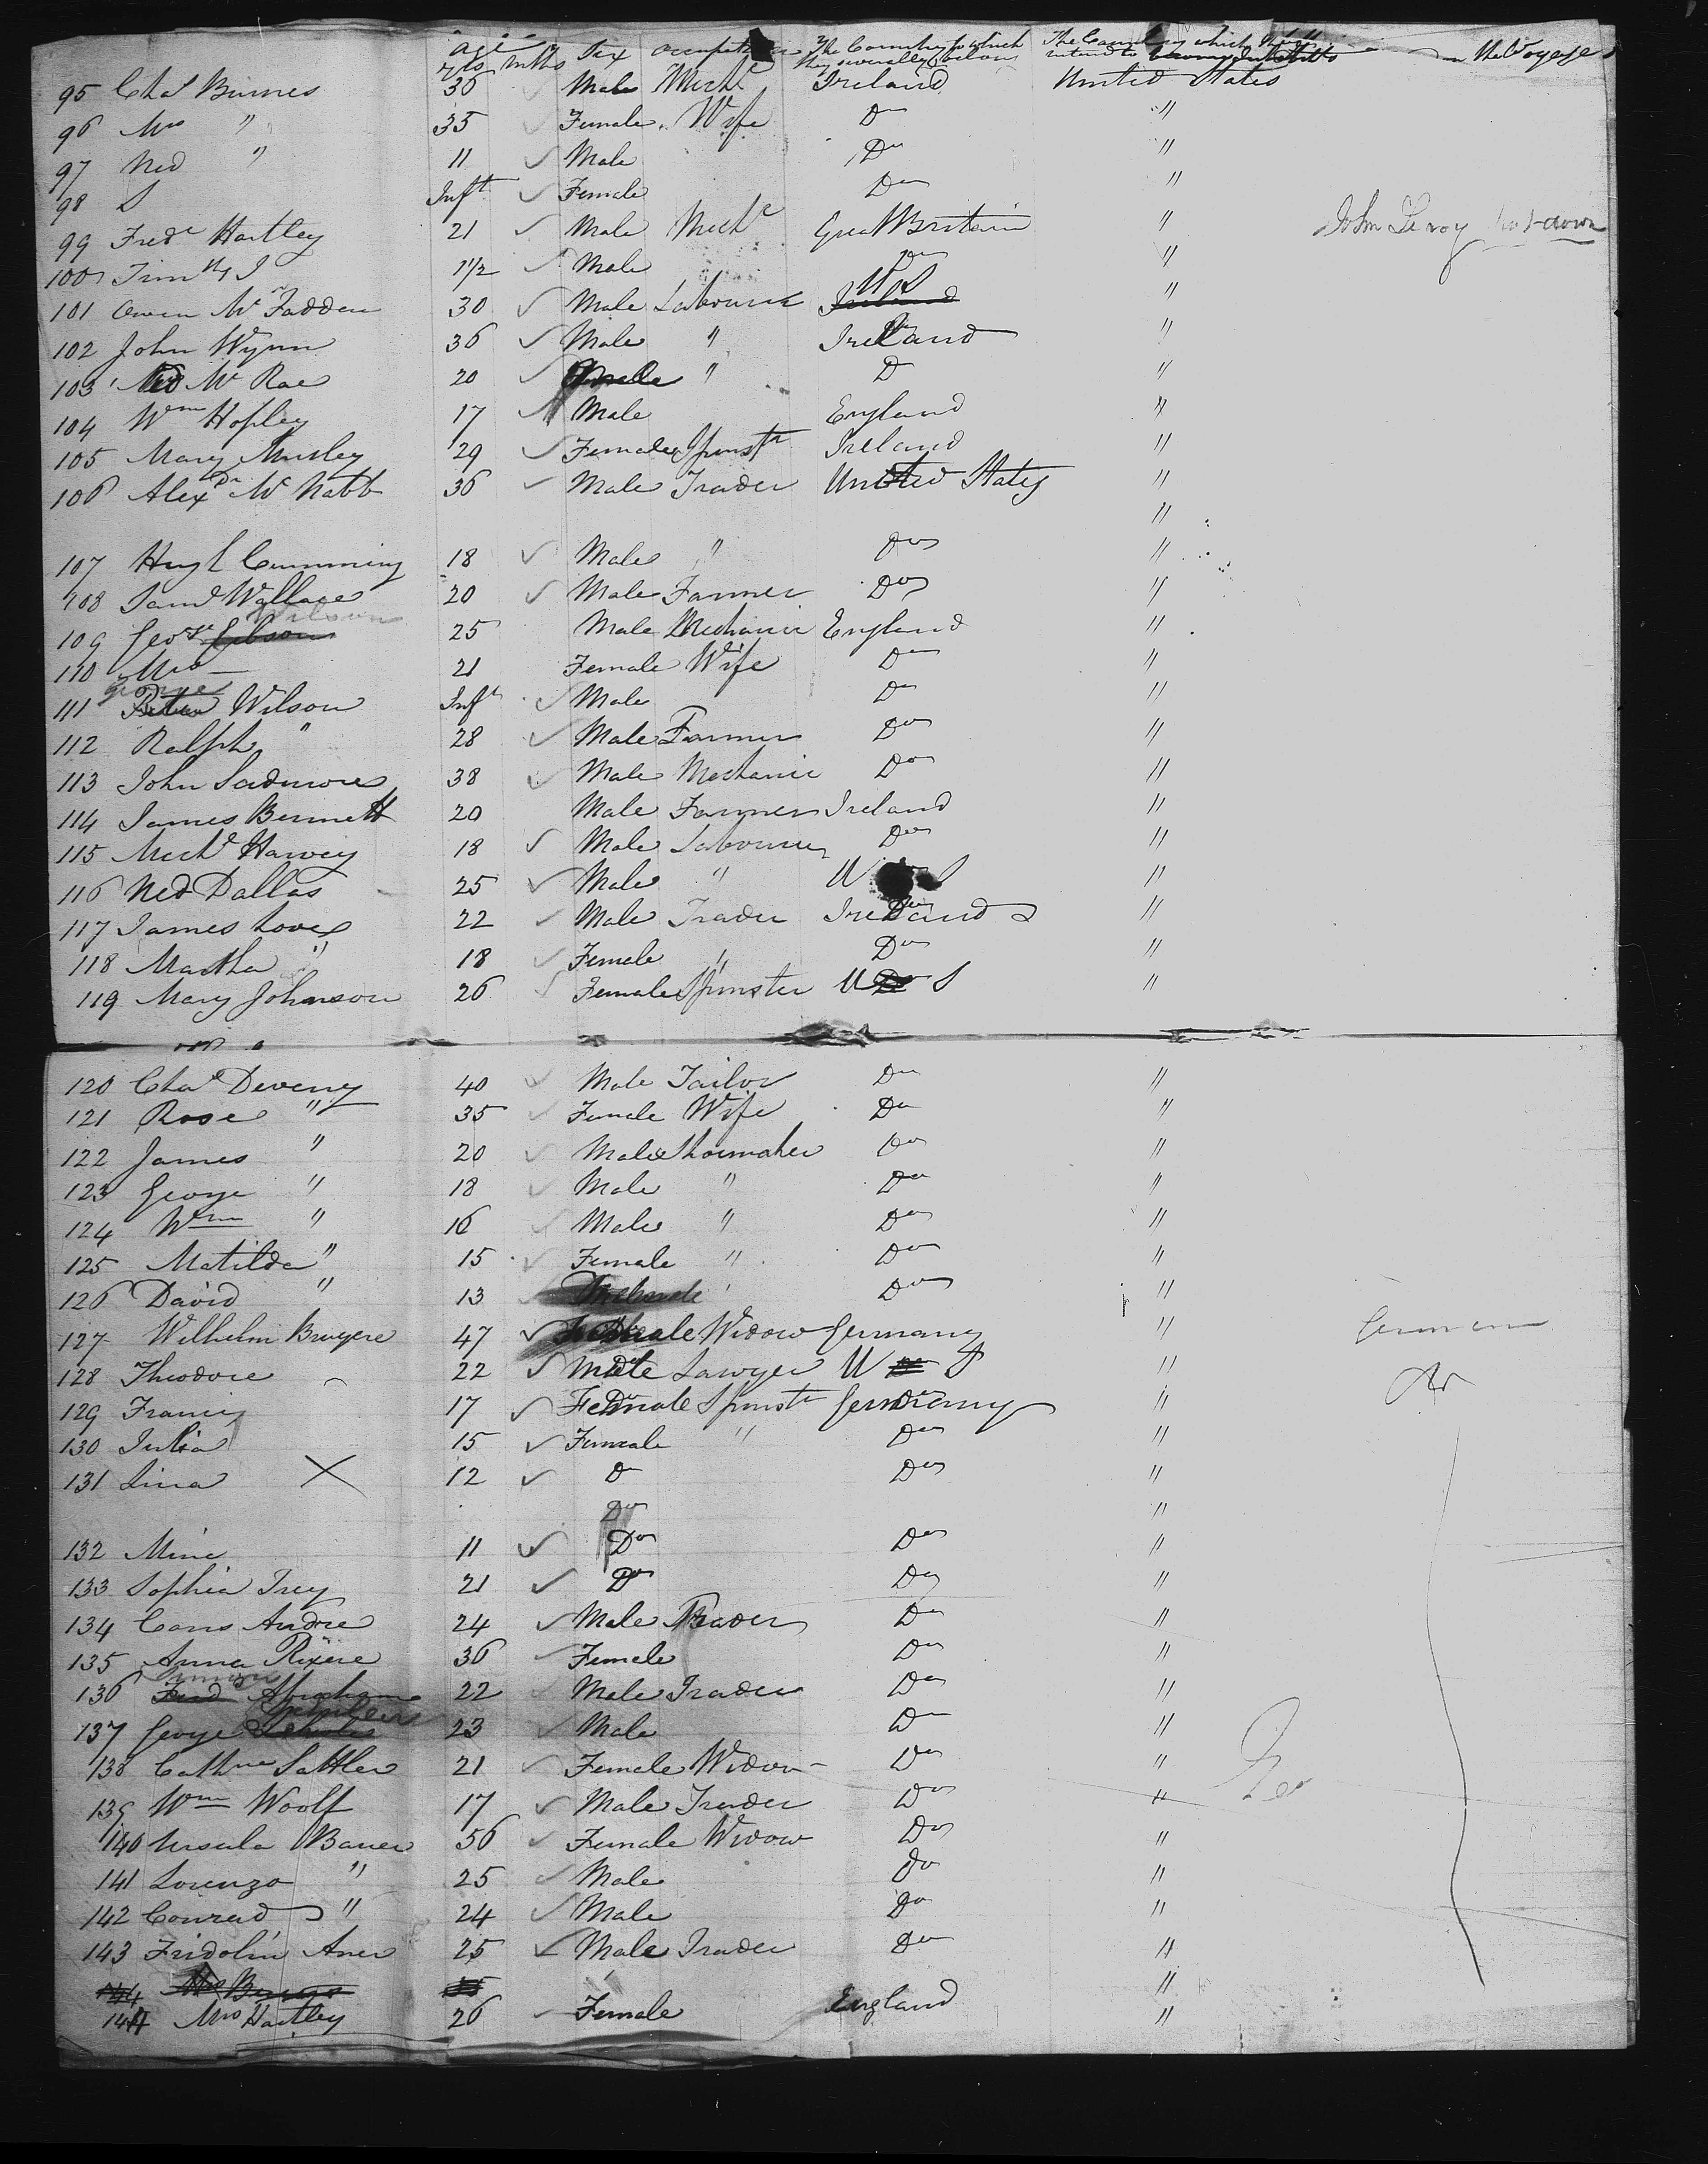 Age Sex occupation The Country to which The Country which they
yrs mths they severally belong intend to the Voyage
95 Chas Burnes 36 Male Mechc Ireland United States
96 Mrs " 35 Female Wife Do "
97 Ned " 11 Male Do "
98 S Inft Female Do "
99 Fredk Hartley 21 Male Mechc Great Britain " John Leroy not down
100 Timthy J 1 1/2 Male Do "
101 Owen Mc Fadden 30 Male Labourer Ireland U S "
102 John Wynn 36 Male " Ireland "
103 Ned Mc Rae 20 Male " D "
104 Wm Hopley 17 Male England "
105 Mary Mursley 29 Female Spinstr Ireland "
106 Alexdr Mc Nabb 36 Male Trader United States "
"
107 Hugh Cumming 18 Male " Do "
108 Saml Wallace 20 Male Farmer Do "
109 Geore Gibson Wilson 25 Male Mechanic England "
110 Mrs 21 Female Wife Do "
111 Peter George Wilson Inft Male Do "
112 Ralph " 28 Male Farmer Do "
113 John Scidmore 38 Male Mechanic Do "
114 James Bennett 20 Male Farmer Ireland "
115 Michl Harvey 18 Male Labourer Do "
116 Ned Dallas 25 Male " U S "
117 James Love 22 Male Trader Ireland "
118 Martha " 18 Female " Do "
119 Mary Johnson 26 Female Spinster U S "
120 Chas Deveny 40 Male Tailor Do "
121 Rose " 35 Female Wife Do "
122 James " 20 Male Shoemaker Do "
123 George " 18 Male " Do "
124 Wm " 16 Male " Do "
125 Matilda " 15 Female " Do "
126 David " 13 Do "
127 Wilhelm Bruyere 47 Female Widow Germany " German
128 Theodore 22 Male Lawyer U S " Do
129 Francis 17 Female Spinstr Germany "
130 Julia 15 Female " Do "
131 Lina X 12 D Do "
Do "
132 Mine 11 Do Do "
133 Sophia Trey 21 Do Do "
134 Cans Andre 24 Male Trader Do "
135 Anna Rixere 36 Female Do "
136 Ferd Simon Abraham 22 Male Trader Do "
137 George 23 Male Do "
138 Cathne Sattler 21 Female Widow Do "
139 Wm Woolf 17 Male Trader Do "
140 Ursula Bauer 56 Female Widow Do "
141 Lorenzo " 25 Male Do "
142 Conrad " 24 Male Do "
143 Fridolin Aner 25 Male Trader Do "
144 Mrs "
144 Mrs Hartley 26 Female England "